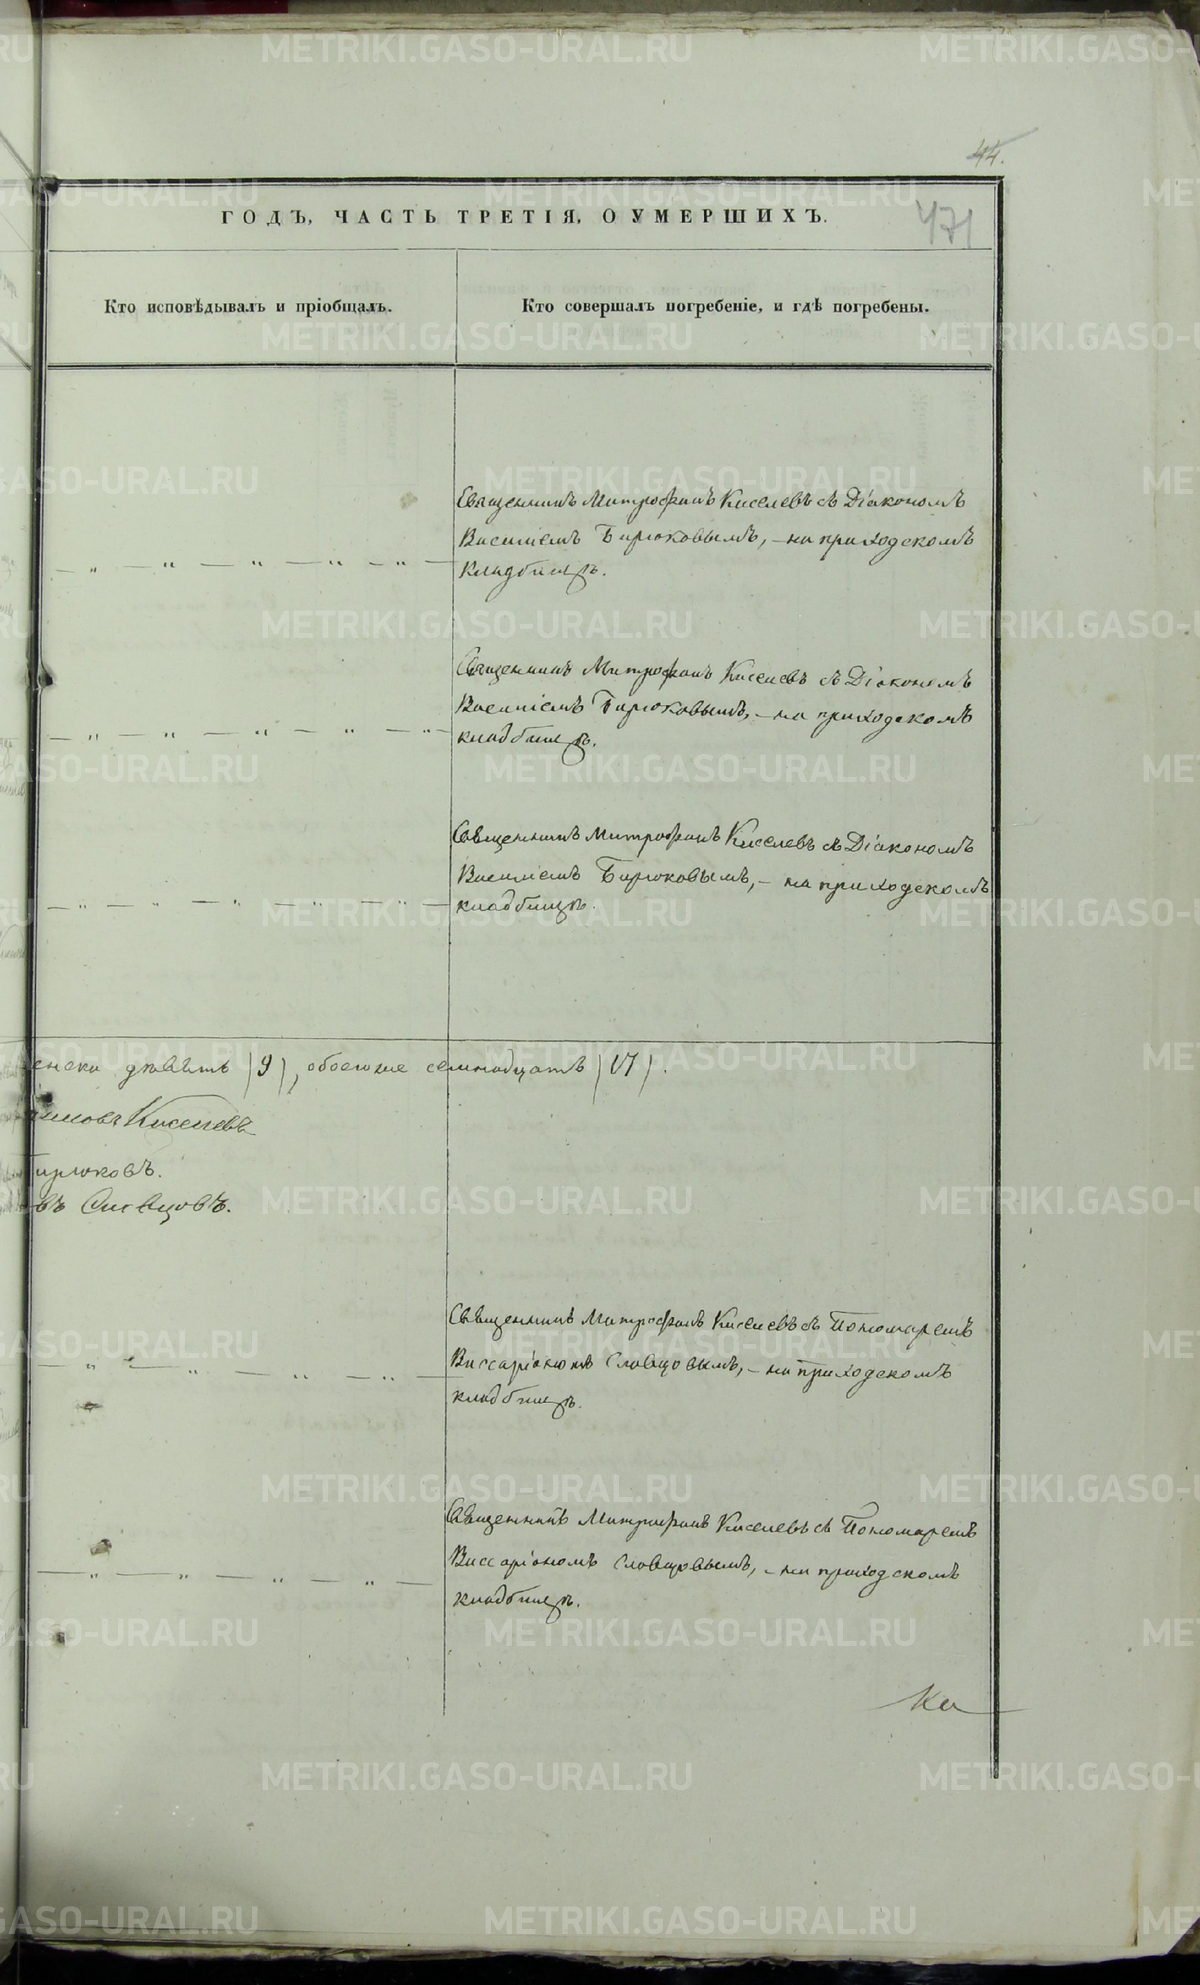 44.
ГОДЪ, ЧАСТЬ ТРЕТІЯ, О УМЕРШИХЪ.
471
Кто исповѣдывалъ и пріобщалъ.
Кто совершалъ погребеніе, и гдѣ погребены.
Священникъ Митрофанъ Киселевъ съ Діакономъ
Василіемъ Бирюковымъ, – на приходскомъ
кладбищѣ.
Священникъ Митрофанъ Киселевъ съ Діакономъ
Василіемъ Бирюковымъ, – на приходскомъ
кладбищѣ.
Священникъ Митрофанъ Киселевъ съ Діакономъ
Василіемъ Бирюковымъ, – на приходскомъ
кладбищѣ.
енска девять (9), обоего же семнадцать (17).
Киселевъ
ирюковъ.
въ Словцовъ.
Священникъ Митрофанъ Киселевъ съ Пономаремъ
Виссаріономъ Словцовымъ, – на приходскомъ
кладбищѣ.
Священникъ Митрофанъ Киселевъ съ Пономаремъ
Виссаріономъ Словцовымъ, – на приходскомъ
кладбищѣ.
Ка
METRIKI.GASO-URAL.RU